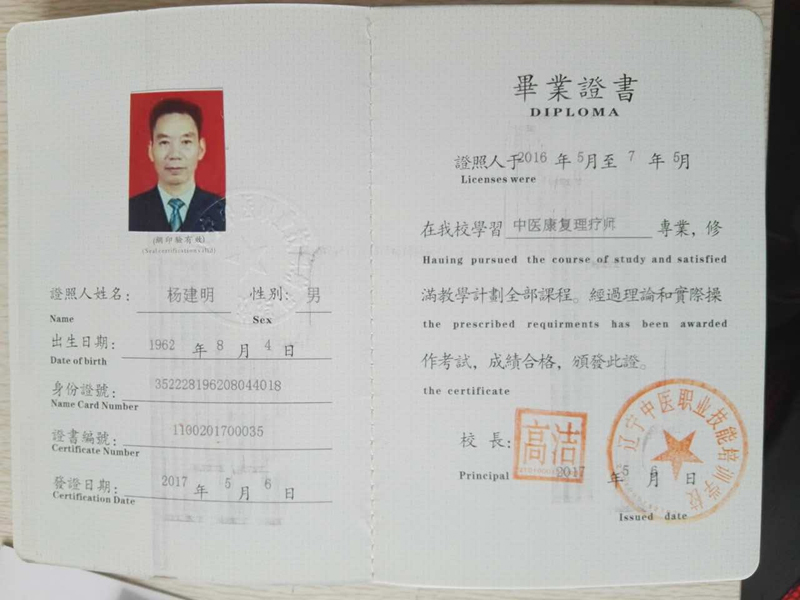 (鋼印驗有效)
證照人姓名: 杨建明 性別: 男
Name Sex
出生日期: 1962 年 8 月 4 日
Date of birth
身份證號: 352228196208044018
Name Card Number
證書編號: 1100201700035
Certificate Number
發證日期: 2017 年 5 月 6 日
Certification Date
畢業證書
DIPLOMA
證照人于2016 年 5月至 7 年 5月
Licenses were
在我校學習 中医康复理疗师 專業，修
Hauing pursued the course of study and satisfied
滿教學計劃全部課程。經過理論和實際操
the prescribed requirments has been awarded
作考試，成績合格，頒發此證。
the certificate
校長: 高洁
Principal 2017 年 5 月 6 日
Issued date
辽宁中医职业技能培训学校